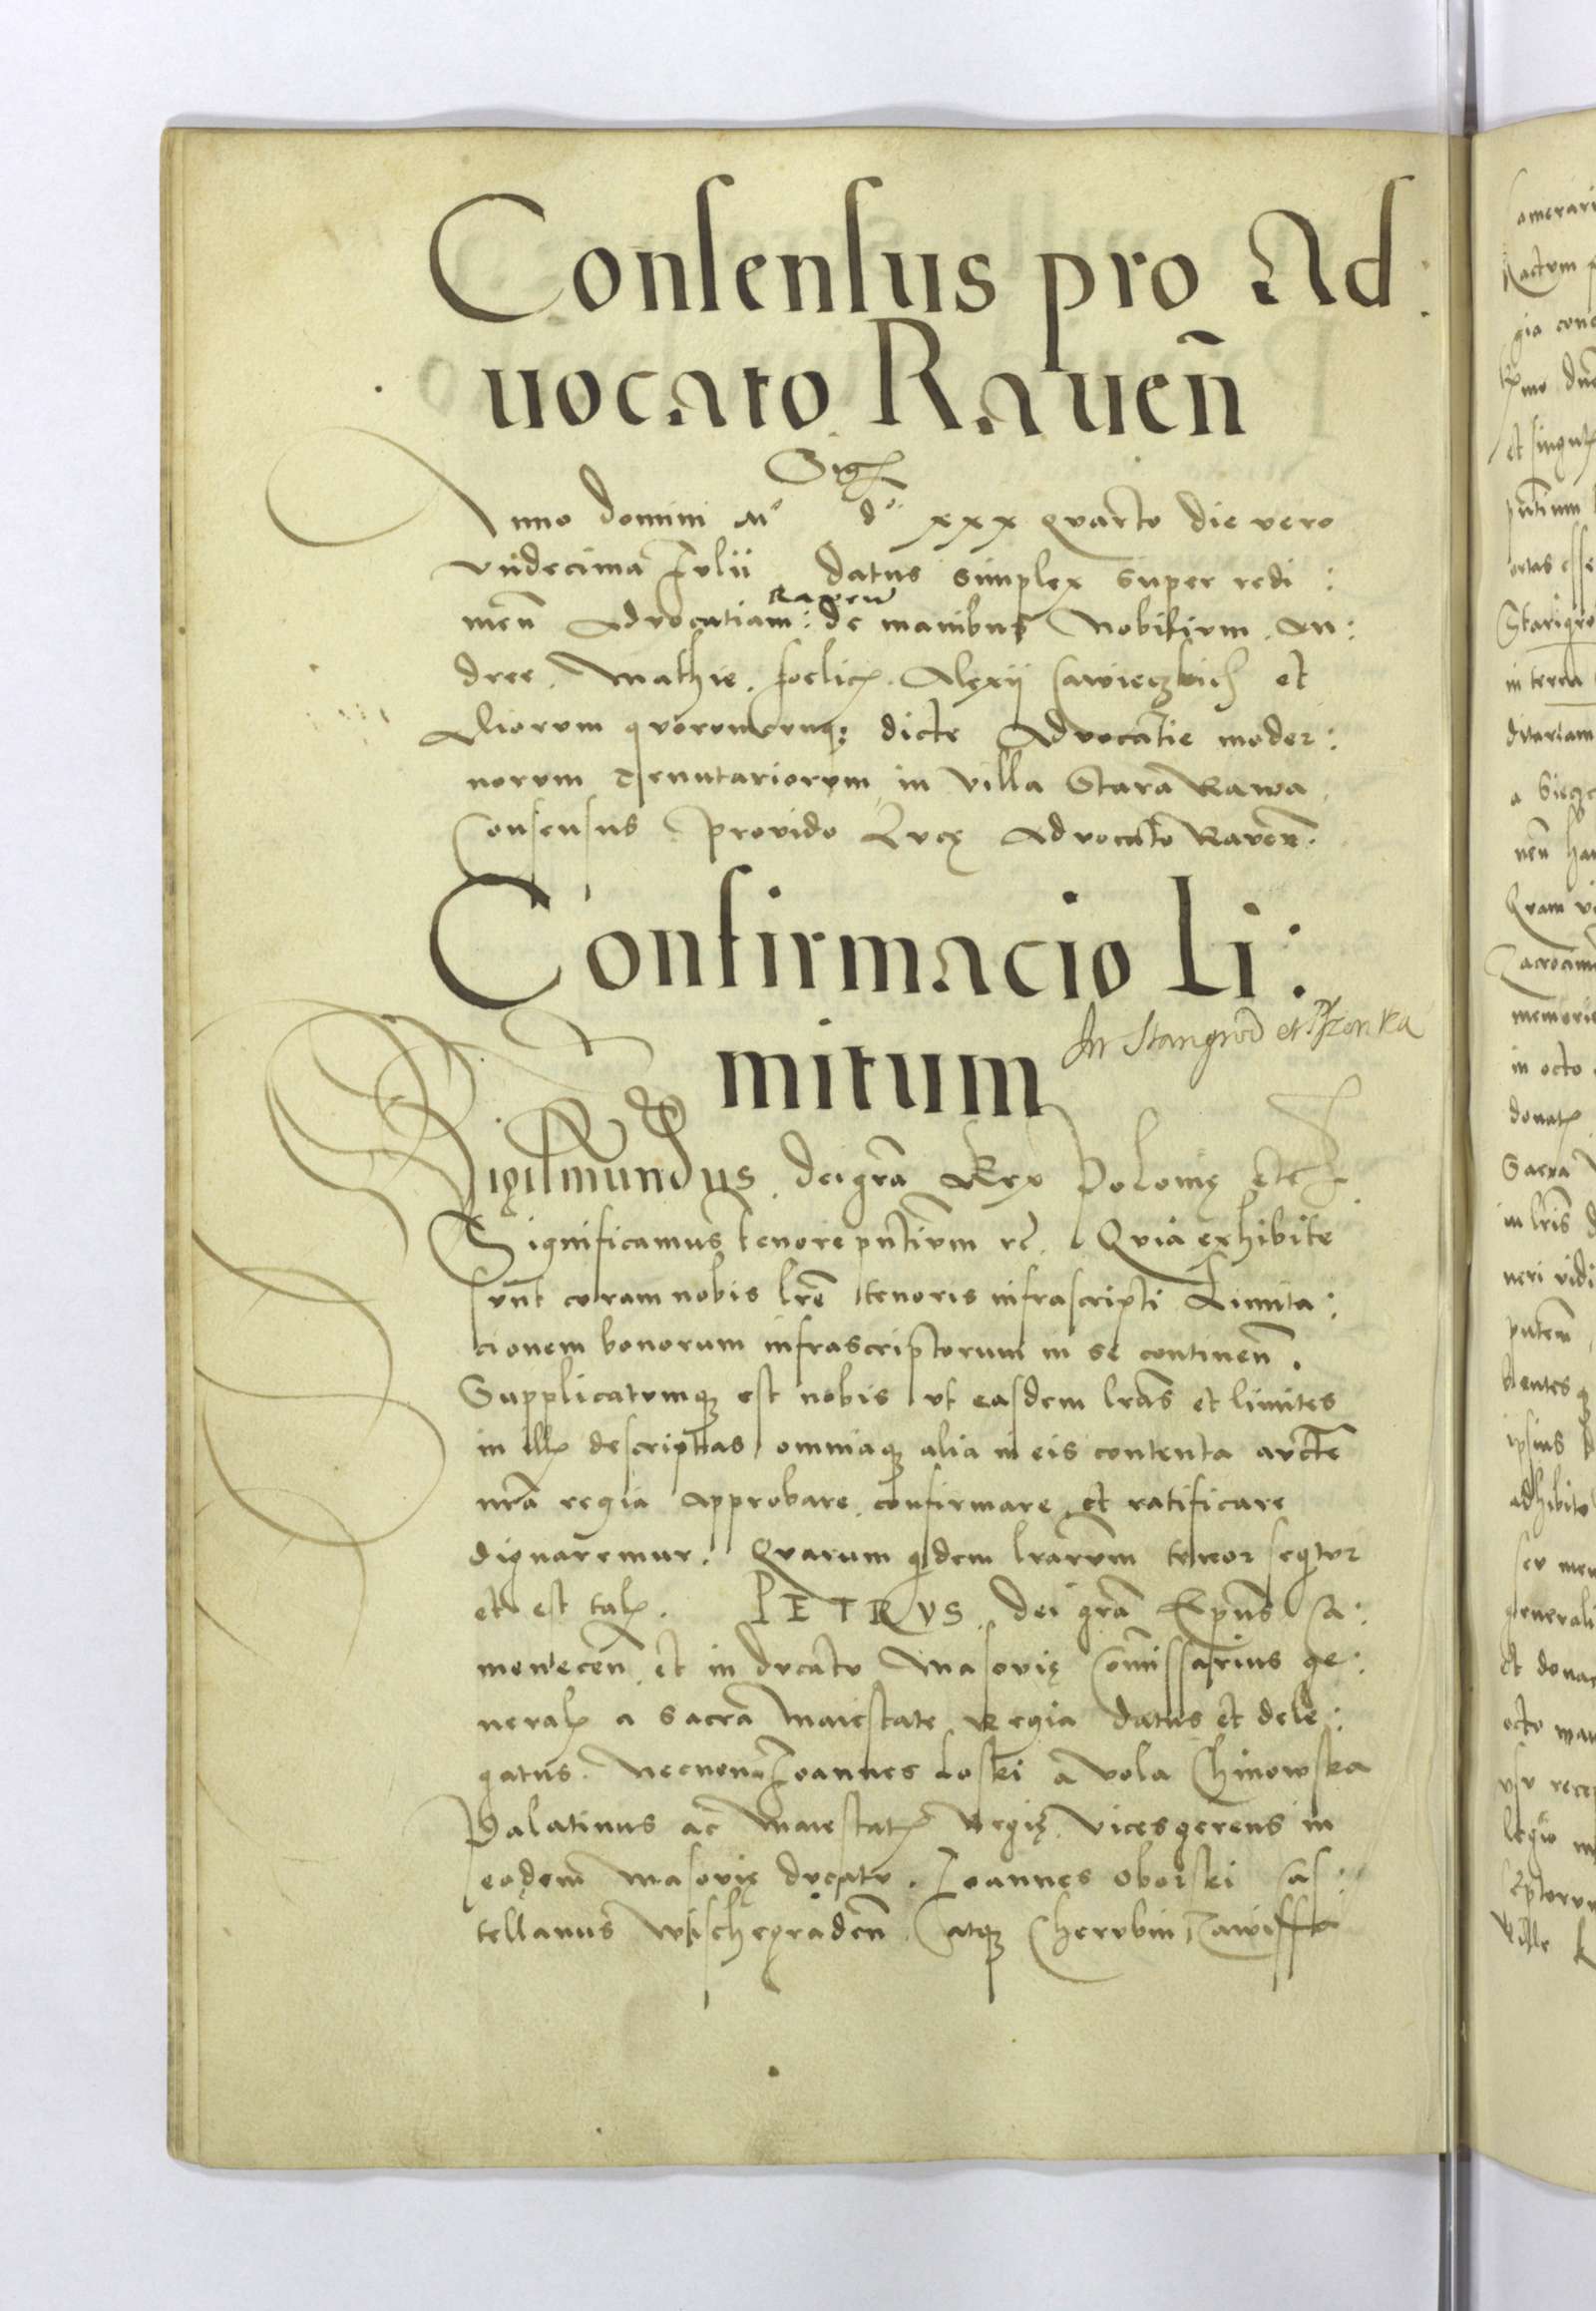 Consensus pro Ad:
uocato Raueñ
Sig
Anno domini Mº dº xxx quarto die vero
vndecima Iulii datus simplex super redi:
meñ Advocatiam: de manibus Nobilium An:
Raveñ
dree. Mathie. foelic. Alexii Cawieczkich et
Aliorum quorumcunq; dicte Advocatie moder:
norum tenutariorum in villa Stara Rawa
Consensus provido Lucę Advocato Raveñ.
Confirmacio Li:
mitum
In Starigrod et Pszonka
Sigismundus dei grã Rex Polonię etc
Significamus tenore pñtium rc̃. Quia exhibite
sunt coram nobis lrẽ tenoris infrascripti Limita:
cionem bonorum infrascriptorum in se contineñ.
Supplicatumq; est nobis ut easdem lrãs et limites
in ill descriptas omniaq; alia in eis contenta auctẽ
nrã regia approbare confirmare et ratificare
dignaremur. Quarum qdem lrarum tenor seqtur
et est tal. PETRVS dei grã Epũs Ca:
meneceñ et in ducatu Masovię Com̃issarius ge:
neral a sacra Maiestate Regia datus et dele:
gatus. Necnon Ioannes Loski a vola Chinowska
Palatinus ac Maiestat Regię vicesgerens in
eodem Masovię ducatu. Ioannes Oborski Cas:
tellanus Wischegradeñ atq; Cherubin Zawissta